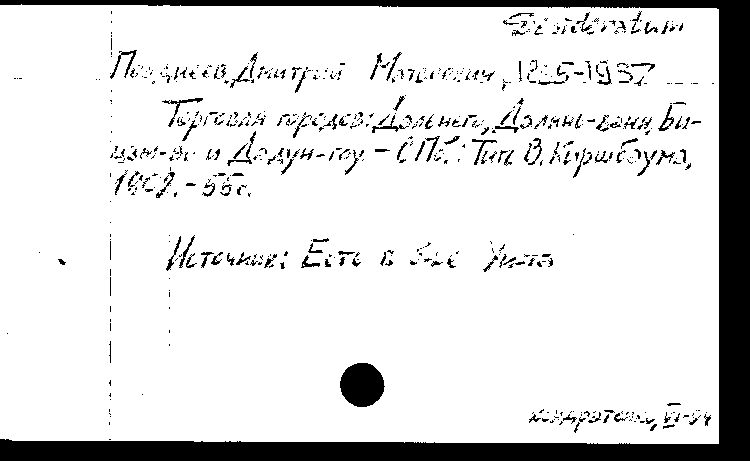 Desideratum
Позднеев, Дмитрий Матвеевич, 1865-1937
Торговля городов: Дальнего, Далянь-вана, Би-
цзы-во и Дадун-гоу. – СПб.: Тип. В. Киршбаума,
1902. – 55с.
Источник: Есть в б-ке Ун-та
Кондратьева, VI-94